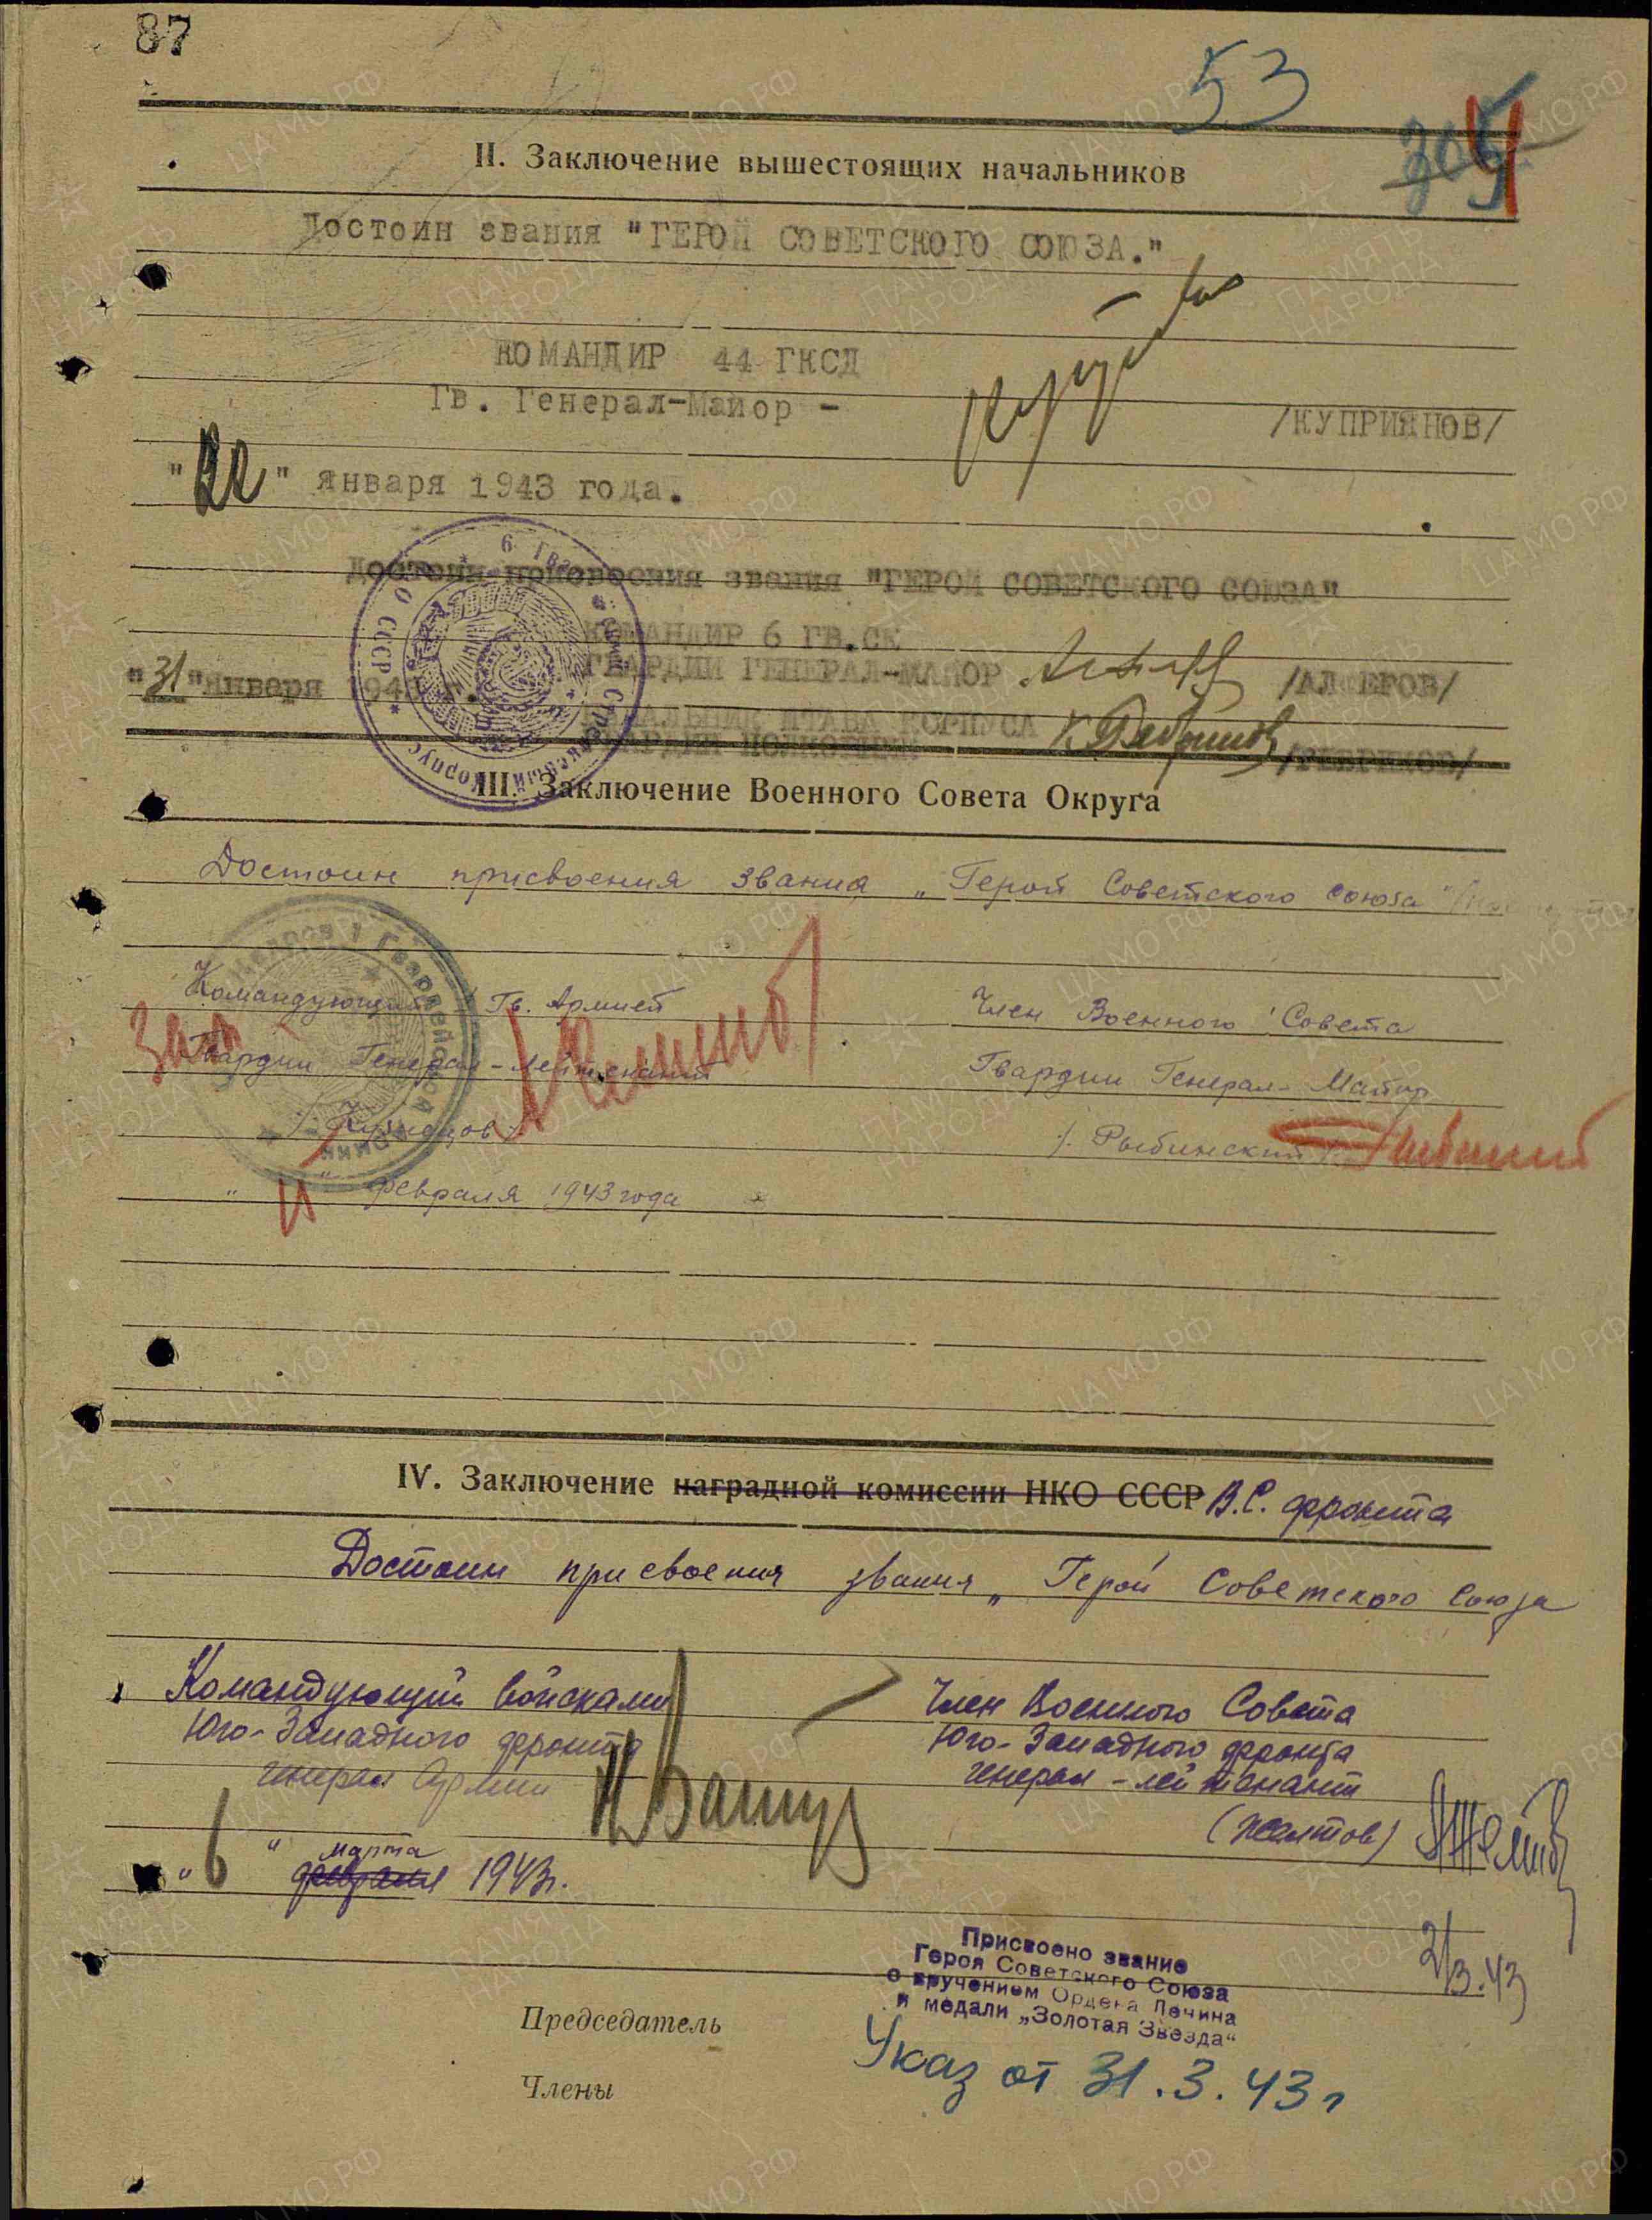 87
53
II. Заключение вышестоящих начальников
Достоин звания "ГЕРОЙ СОВЕТСКОГО СОЮЗА."
КОМАНДИР 44 ГКСД
Гв. Генерал-Майор -
/КУПРИЯНОВ/
"22" января 1943 года.
Достоин присвоения звания "ГЕРОЙ СОВЕТСКОГО СОЮЗА"
КОМАНДИР 6 ГВ.СК
ГВАРДИИ ГЕНЕРАЛ-МАЙОР /АЛФЕРОВ/
"31" января 1943 г.
НАЧАЛЬНИК ШТАБА КОРПУСА
ГВАРДИИ ПОЛКОВНИК
III. Заключение Военного Совета Округа
Достоин присвоения звания „Герой Советского Союза"
Командующий 1 Гв. Армией
Член Военного Совета
Зам
Гвардии Генерал-лейтенант
Гвардии Генерал-Майор
/. Кузнецов /.
/. Рыбинский /.
" 11 " февраля 1943 года
IV. Заключение наградной комиссии НКО СССР В.С. фронта
Достоин присвоения звания „Герой Советского Союза
Командующий войсками
Юго-Западного фронта
генерал Армии
Член Военного Совета
Юго-Западного фронта
генерал-лейтенант
(Желтов)
„6" марта
февраля 1943г.
Присвоено звание
Героя Советского Союза
с вручением Ордена Ленина
и медали „Золотая Звезда"
Председатель
Члены
Указ от 31.3.43 г
ЦА МО РФ
ПАМЯТЬ НАРОДА